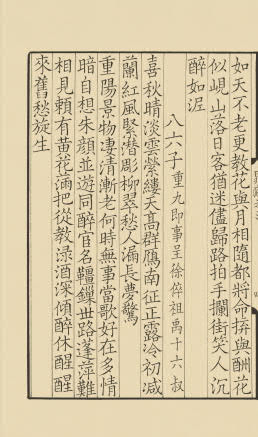 如天不老更教花與月相隨都將命拚與酬花
似峴山落日客猶迷儘歸路拍手攔街笑人沉
醉如泥
八六子重九即事呈徐倅祖禹十六叔
喜秋晴淡雲縈縷天高群鴈南征正露冷初減
蘭紅風緊潛彫柳翠愁人漏長夢驚
重陽景物凄清漸老何時無事當歌好在多情
暗自想朱顔並遊同醉官名韁鏁世路蓬萍難
相見頼有黄花滿把從教渌酒深傾醉休醒醒
來舊愁旋生